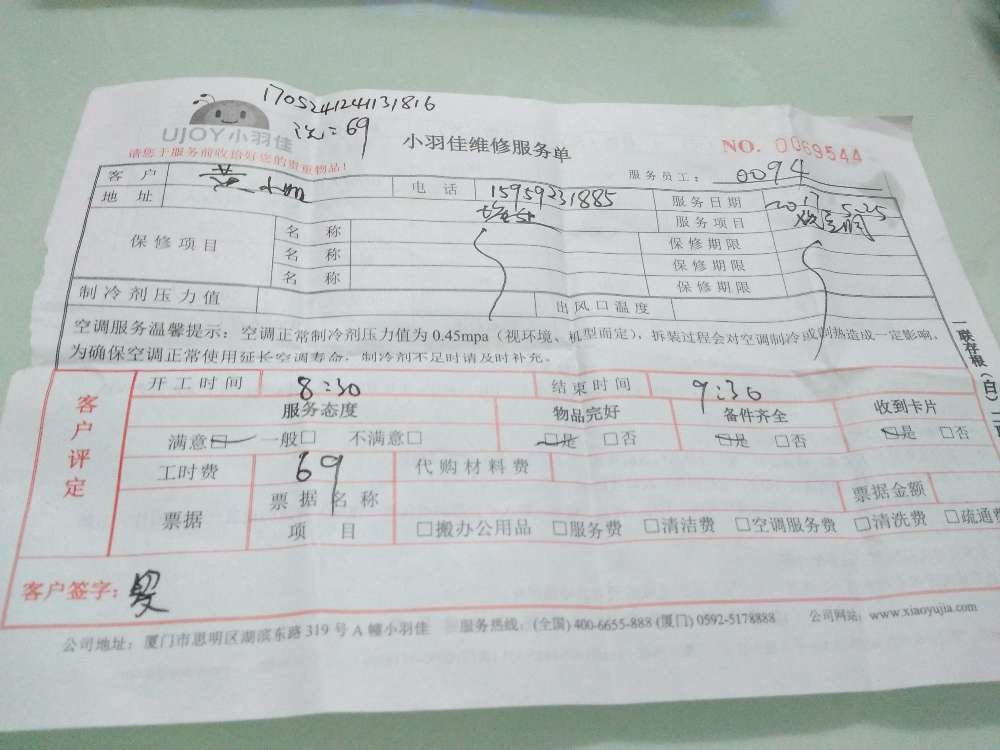 170524124131816
UJOY小羽佳
洗：69
小羽佳维修服务单
NO. 0069544
请您于服务前收拾好您的贵重物品！
服务员工： 0094
客 户 黄小姐 电 话 15959231885 服务日期 2017.5.25
地 址 服务项目
保修项目 名 称 保修期限
名 称 保修期限
名 称 保修期限
制冷剂压力值 出风口温度
空调服务温馨提示：空调正常制冷剂压力值为 0.45mpa（视环境、机型而定），拆装过程会对空调制冷或制热造成一定影响，
为确保空调正常使用延长空调寿命，制冷剂不足时请及时补充。
一联存根（白）
客户评定
开工时间 8:30 结束时间 9:30
服务态度 物品完好 备件齐全 收到卡片
满意□ 一般□ 不满意□ □是 □否 □是 □否 □是 □否
工时费 69 代购材料费
票据 票据名称 票据金额
项 目 □搬办公用品 □服务费 □清洁费 □空调服务费 □清洗费 □疏通费
客户签字：
公司地址：厦门市思明区湖滨东路 319 号 A 幢小羽佳 服务热线：(全国) 400-6655-888 (厦门) 0592-5178888 公司网站：www.xiaoyujia.com